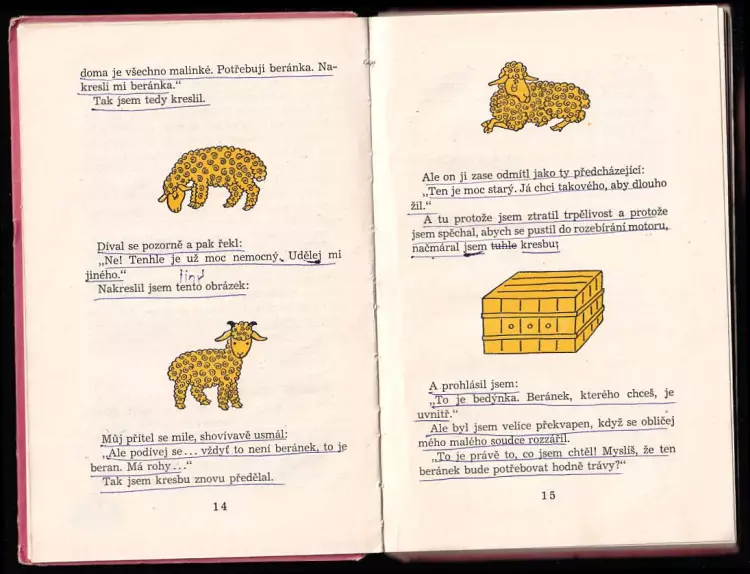 doma je všechno malinké. Potřebuji beránka. Na-
kresli mi beránka.“
Tak jsem tedy kreslil.
Díval se pozorně a pak řekl:
„Ne! Tenhle je už moc nemocný. Udělej mi
jiného.“
jiný
Nakreslil jsem tento obrázek:
Můj přítel se mile, shovívavě usmál:
„Ale podívej se... vždyť to není beránek, to je
beran. Má rohy...“
Tak jsem kresbu znovu předělal.
14
Ale on ji zase odmítl jako ty předcházející:
„Ten je moc starý. Já chci takového, aby dlouho
žil.“
A tu protože jsem ztratil trpělivost a protože
jsem spěchal, abych se pustil do rozebírání motoru,
načmáral jsem tuhle kresbu:
A prohlásil jsem:
„To je bedýnka. Beránek, kterého chceš, je
uvnitř.“
Ale byl jsem velice překvapen, když se obličej
mého malého soudce rozzářil.
„To je právě to, co jsem chtěl! Myslíš, že ten
beránek bude potřebovat hodně trávy?“
15